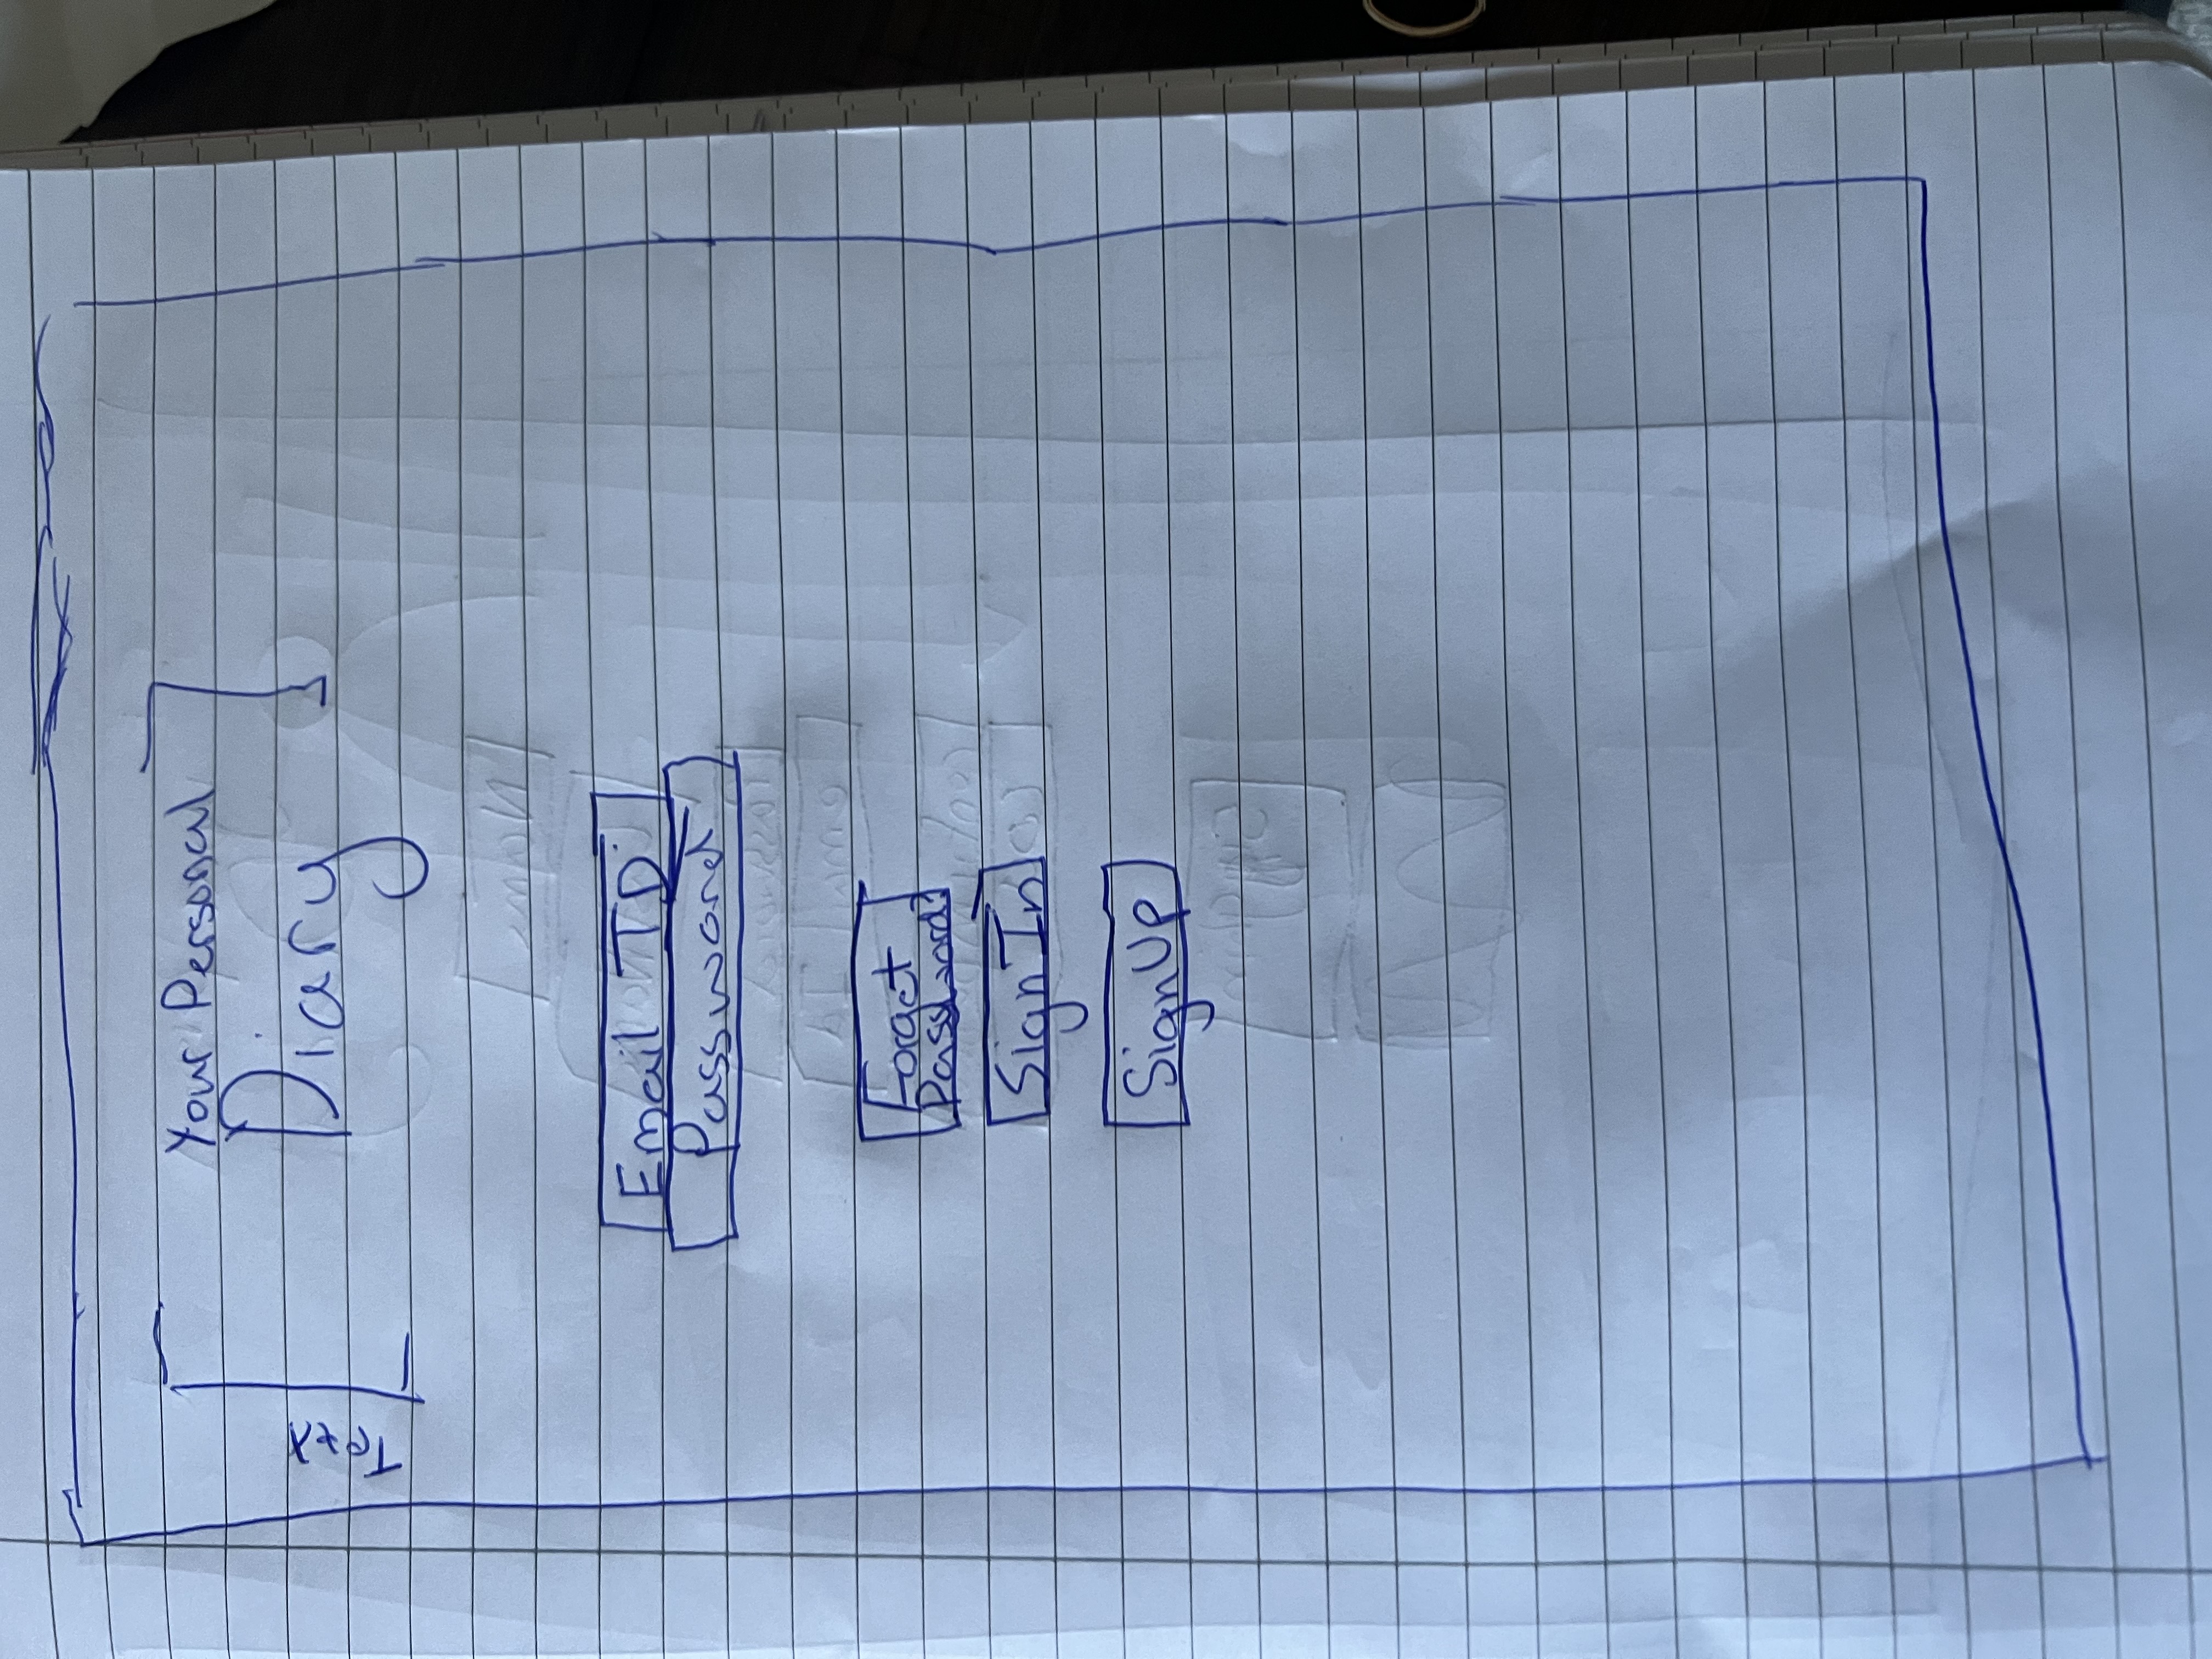 Your Personal
Diary
Text
Email ID
Password
Forget
Password
Sign In
Sign Up